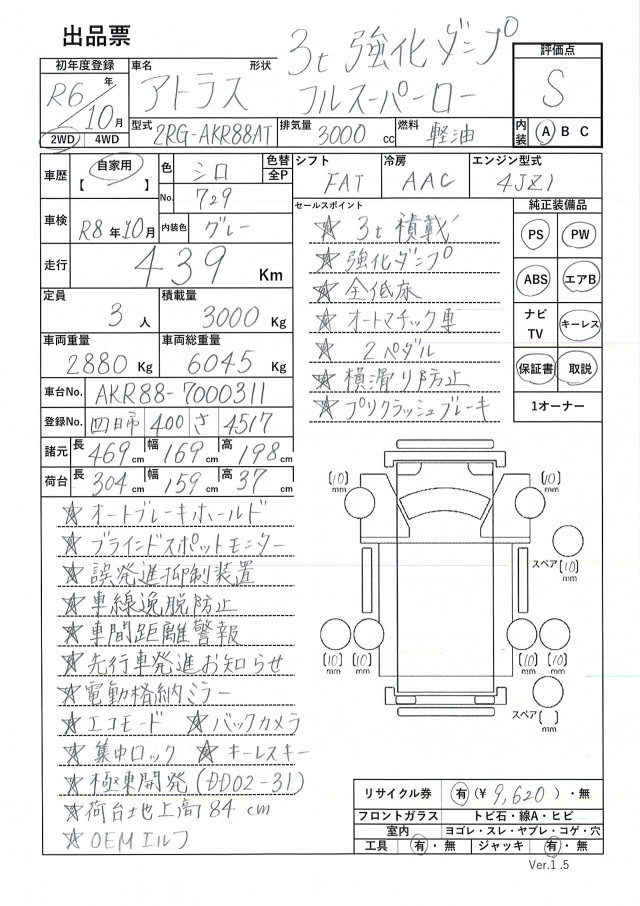 出品票
初年度登録 車名 形状 3t 強化ダンプ 評価点
R6年 10月 アトラス フルスーパーロー S
2WD 4WD 型式 2RG-AKR88AT 排気量 3000cc 燃料 軽油 内装 A B C
車歴 自家用 【 】 色 シロ 色替 全P シフト FAT 冷房 AAC エンジン型式 4JZ1
No. 729
車検 R8年10月 内装色 グレー
セールスポイント
純正装備品
☆ 3t 積載 PS PW
走行 439 Km
☆ 強化ダンプ ABS エアB
☆ 全低床
定員 3人 積載量 3000Kg
☆ オートマチック車 ナビTV キーレス
車両重量 2880Kg 車両総重量 6045Kg
☆ 2ペダル 保証書 取説
☆ 横滑り防止
車台No. AKR88-7000311
☆ プリクラッシュブレーキ 1オーナー
登録No. 四日市 400 さ 4517
諸元 長 469cm 幅 169cm 高 198cm
荷台 長 304cm 幅 159cm 高 37cm
[10]mm [10]mm
☆ オートブレーキホールド
☆ ブラインドスポットモニター
スペア [10]mm
☆ 誤発進抑制装置
☆ 車線逸脱防止
☆ 車間距離警報
[10]mm [10]mm [10]mm [10]mm
☆ 先行車発進お知らせ
☆ 電動格納ミラー
スペア [ ]mm
☆ エコモード ☆ バックカメラ
☆ 集中ロック ☆ キーレスキー
☆ 極東開発 (DD02-31)
☆ 荷台地上高84cm
☆ OEMエルフ
リサイクル券 有(¥ 9,620 )・無
フロントガラス トビ石・線A・ヒビ
室内 ヨゴレ・スレ・ヤブレ・コゲ・穴
工具 有・無 ジャッキ 有・無
Ver.1.5